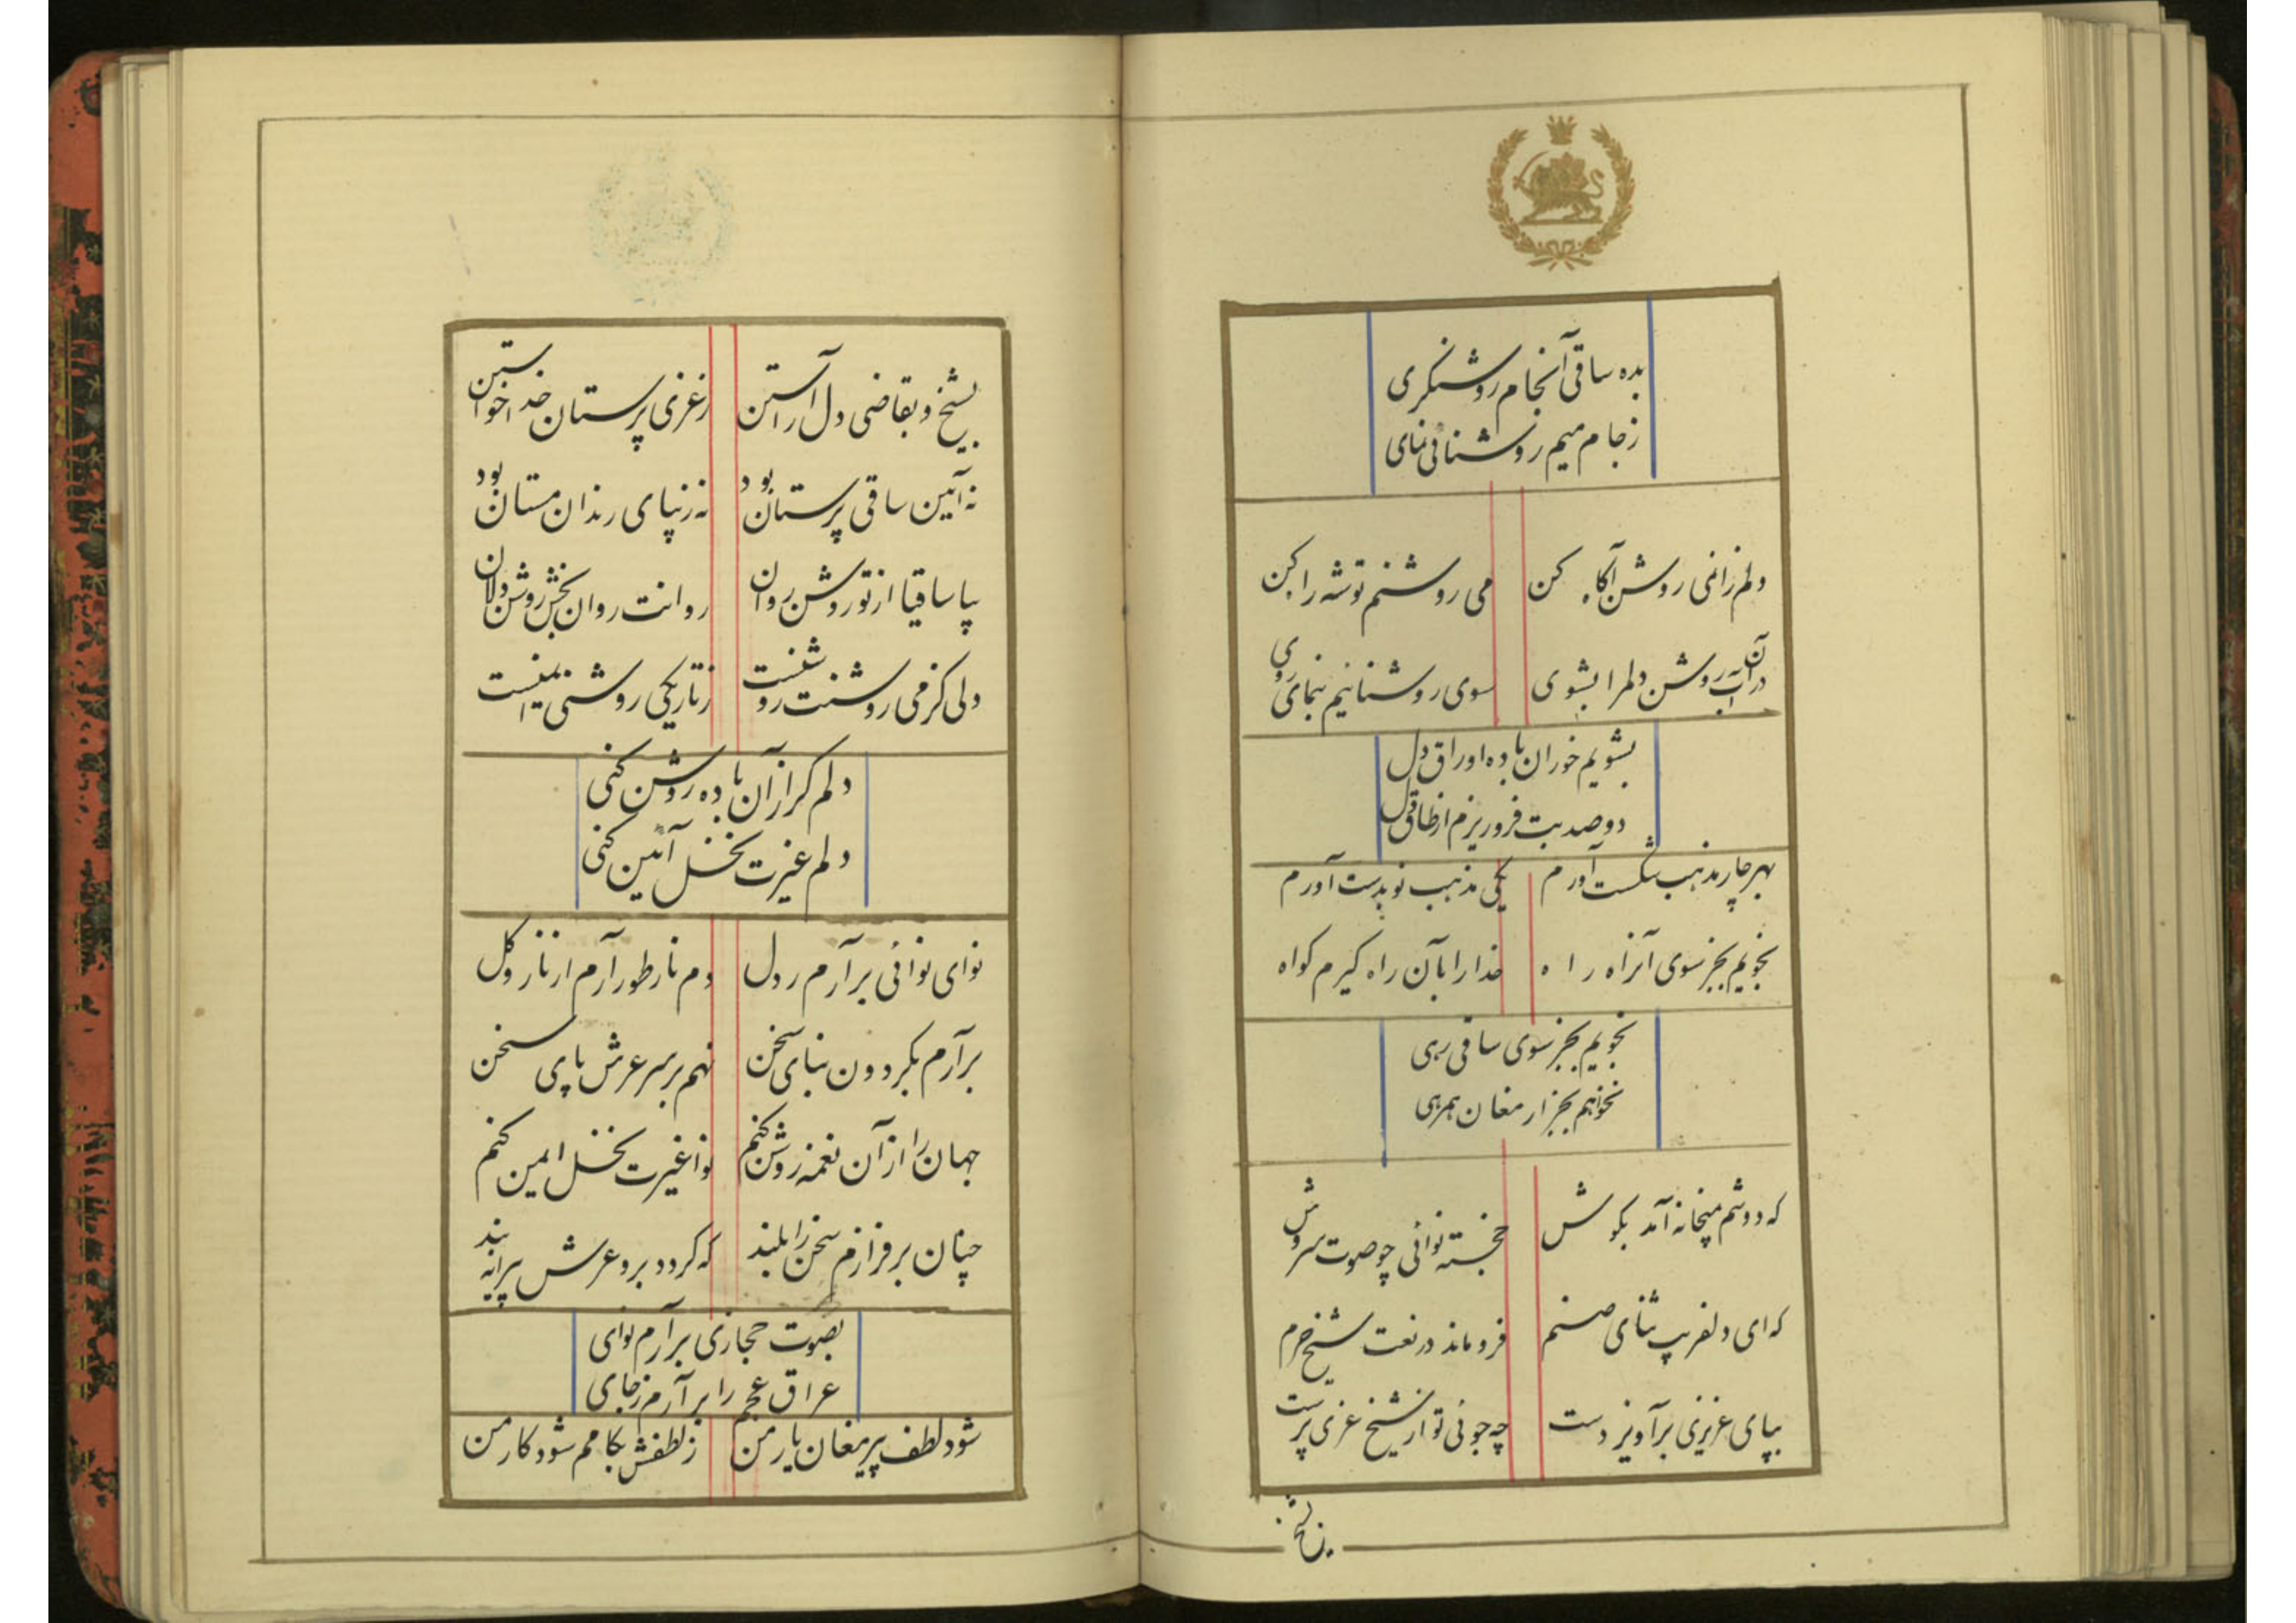 بده ساقی آنجام روشنگری
ز جام میم روشنائی نمای
دلم زانمی روشن آگاه کن می روشنم توشه راه کن
در آن آب روشن دلمرا بشوی سوی روشنائیم بنمای روی
بشویم خوران باده اوراق دل
دو صد بت فرو ریزم از طاق دل
بهر چار مذهب شکست آورم یکی مذهب نو بدست آورم
نجویم بجز سوی آنراه راه خدا را بآن راه گیرم گواه
نجویم بجز سوی ساقی رهی
نخواهم بجز از مغان همرهی
که دوشم میخانه آمد بگوش خجسته نوائی چو صوت سروش
که ای دلفریب ثنای صنم فرو ماند در نعت شیخ حرم
بپای عزیزی برآویز دست چه جوئی تو از شیخ غزی پرست
بشیخ
بشیخ و بقاضی دل آراستن ز غزی پرستان خدا خواستن
نه آیین ساقی پرستان بود نه زیبای رندان مستان بود
بیا ساقیا از تو روشن روان روانت روان بخش روشن دلان
دلی کز می روشنت روشنست ز تاریکی روشنی ایمنست
دلم گر از آن باده روشن کنی
دلم غیرت نخل آیین کنی
نوای نوائی برآرم ز دل دم نار طور آرم از نار و گل
برآرم بگردون بنای سخن نهم بر سر عرش پای سخن
جهان را از آن نغمه روشن کنم نوا غیرت نخل ایمن کنم
چنان برفرازم سخن را بلند که گردد برو عرش پیرایه بند
بصوت حجازی برآرم نوای
عراق عجم را برآرم ز جای
شود لطف پیر مغان یار من ز لطفش بکامم شود کار من